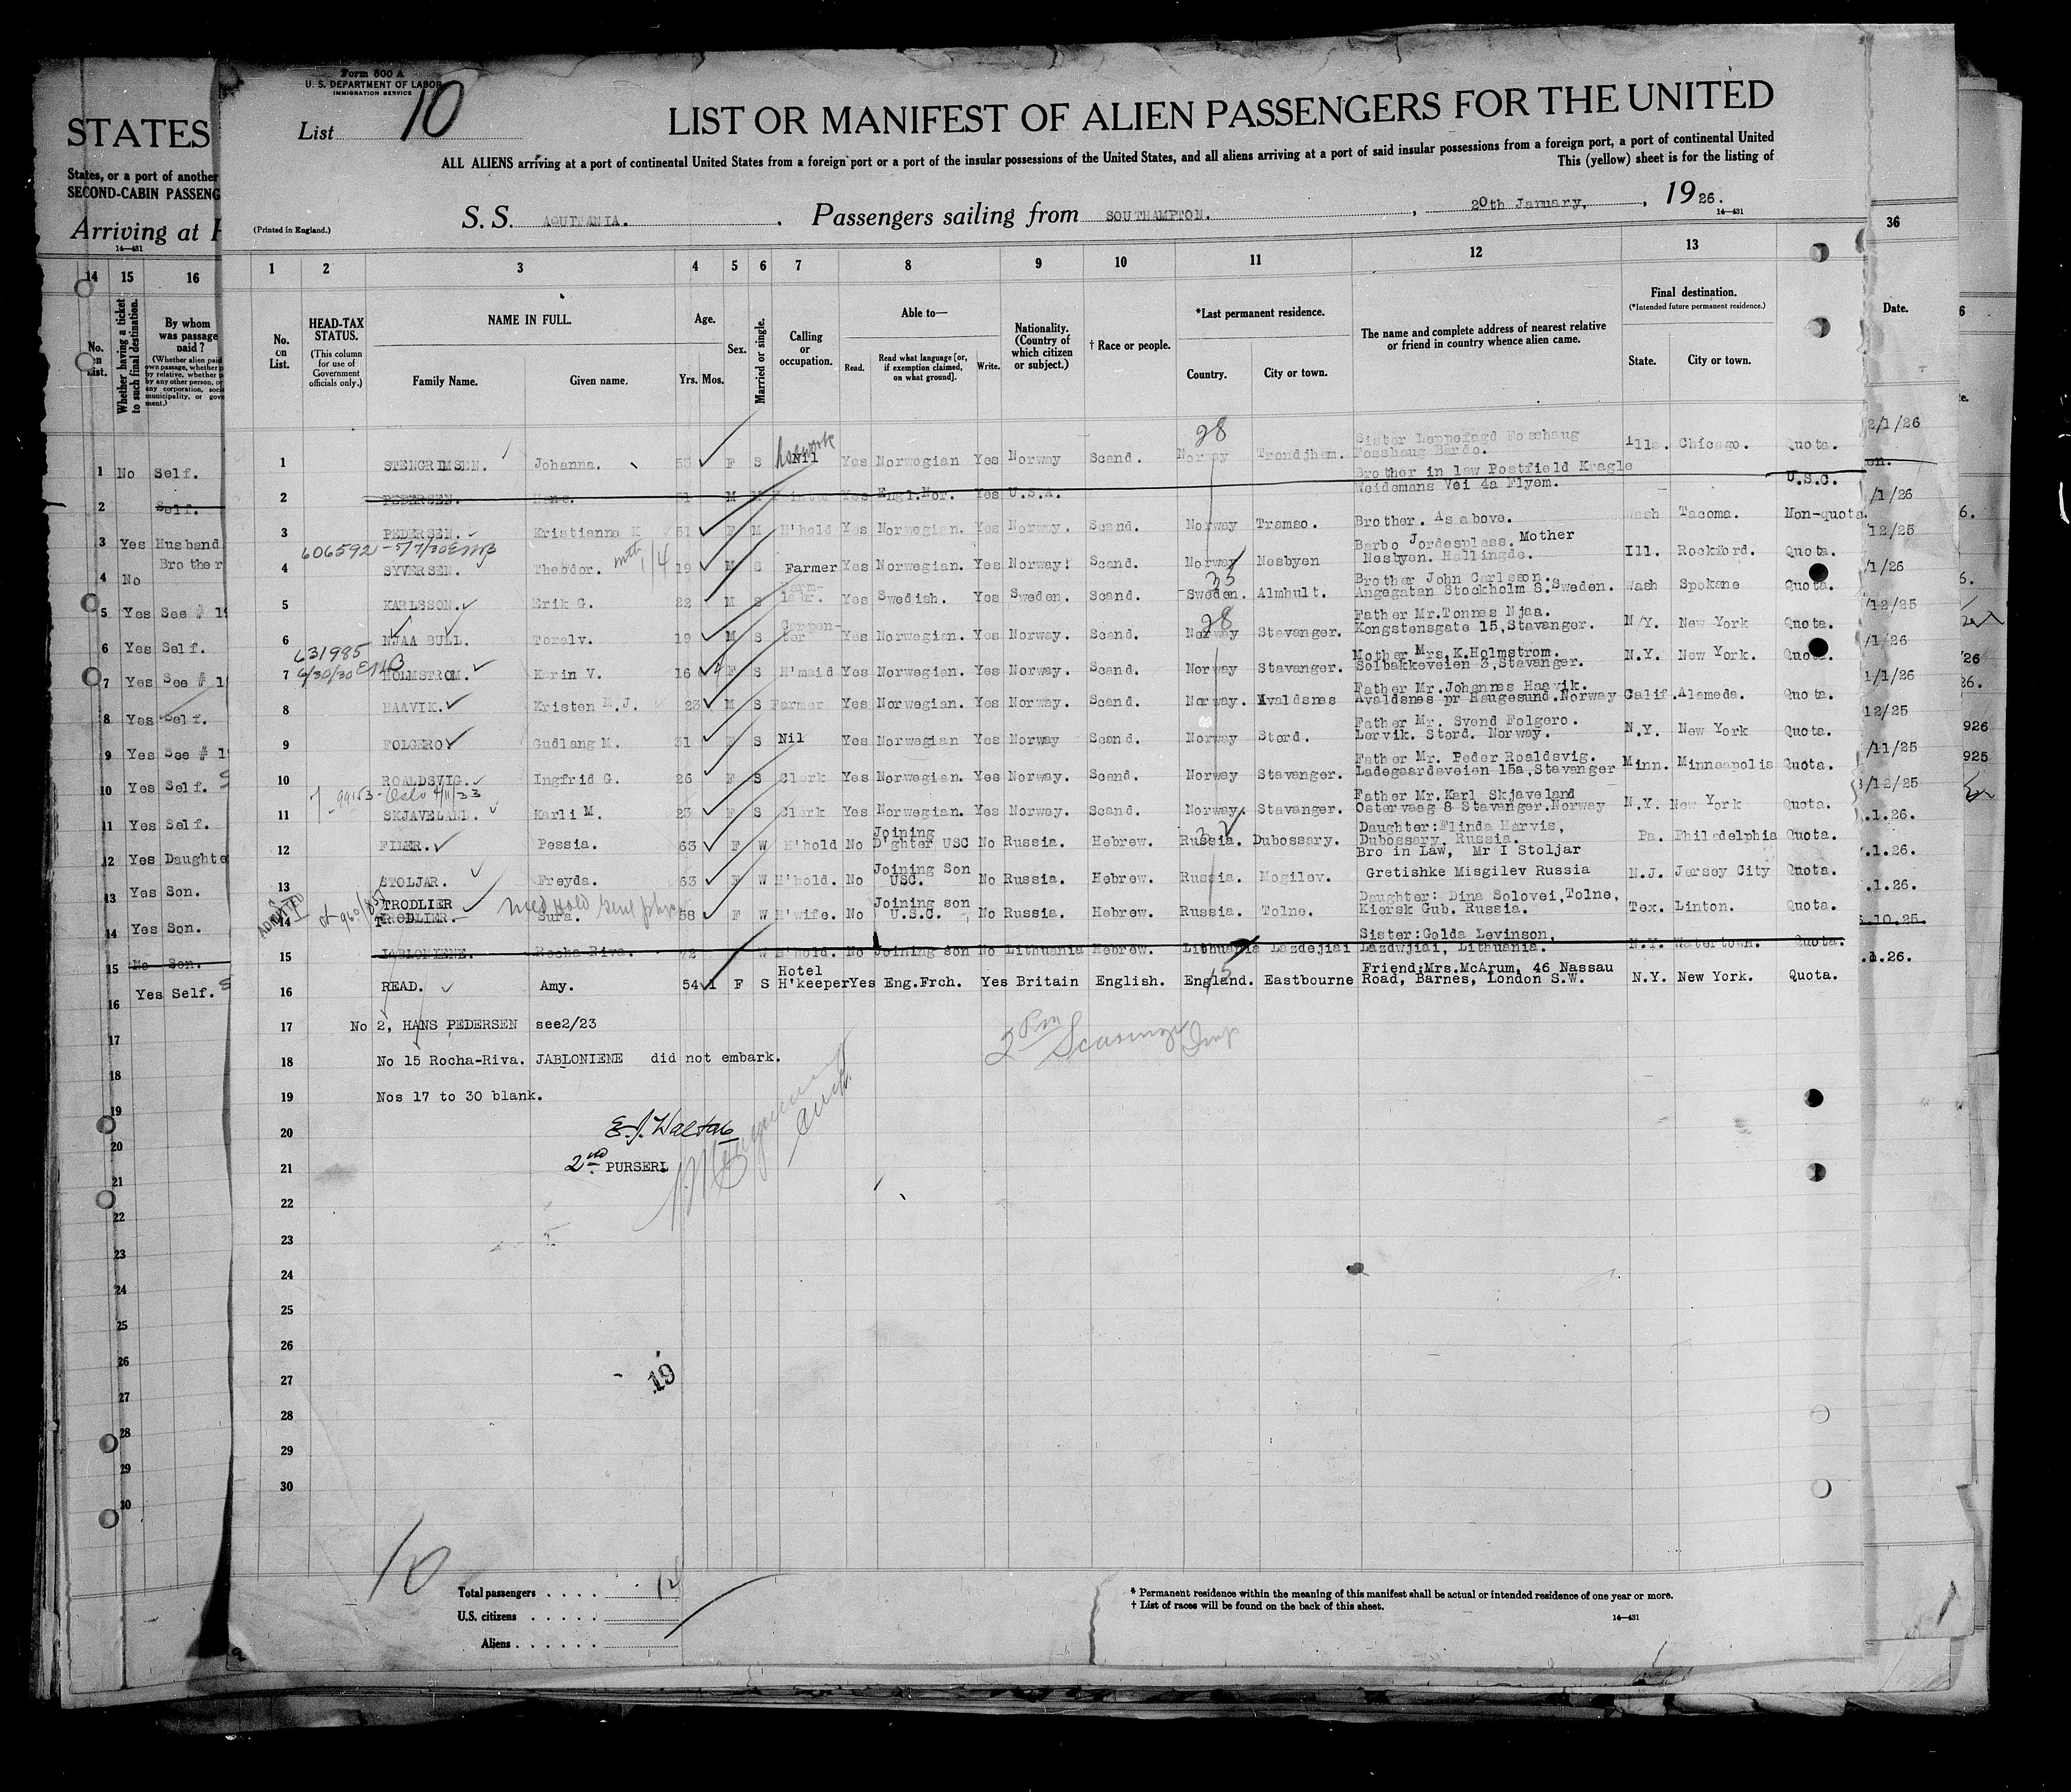 Form 600 A
U. S. DEPARTMENT OF LABOR
IMMIGRATION SERVICE
List 10
LIST OR MANIFEST OF ALIEN PASSENGERS FOR THE UNITED
ALL ALIENS arriving at a port of continental United States from a foreign port or a port of the insular possessions of the United States, and all aliens arriving at a port of said insular possessions from a foreign port, a port of continental United
This (yellow) sheet is for the listing of
(Printed in England.)
S. S. AQUITANIA. Passengers sailing from SOUTHAMPTON. , 20th January, , 1926.
14—431
STATES
States, or a port of another
SECOND-CABIN PASSENG
Arriving at
14—431
14 15 16
No. on List.
Whether having a ticket to such final destination.
By whom was passage paid?
1 No Self.
2 Self.
3 Yes Husband
Brother
4 No
5 Yes See # 1
6 Yes Self.
7 Yes See # 1
8 Yes Self.
9 Yes See # 1
10 Yes Self.
11 Yes Self.
12 Yes Daughte
13 Yes Son.
14 Yes Son.
15 No Son.
16 Yes Self.
1 2 3 4 5 6 7 8 9 10 11 12 13
No. on List.
HEAD-TAX STATUS.
(This column for use of Government officials only.)
NAME IN FULL.
Family Name. Given name.
Age.
Yrs. Mos.
Sex.
Married or single.
Calling or occupation.
Able to—
Read. Read what language [or, if exemption claimed, on what ground]. Write.
Nationality. (Country of which citizen or subject.)
† Race or people.
*Last permanent residence.
Country. City or town.
The name and complete address of nearest relative or friend in country whence alien came.
Final destination.
(*Intended future permanent residence.)
State. City or town.
28
Sister Leppefagd Fosshaug
1 STENGRIMSEN. Johanna. 53 F S Nil Yes Norwegian Yes Norway Scand. Norway Trondjhem. Fosshaug Bardo. Ills. Chicago. Quota.
Brother in law Postfield Kragle
2 PEDERSEN. Hans. 51 M M Yes Engl.Nor. Yes U.S.A. Weidemans Vei 4a Flyem. U.S.C.
3 PEDERSEN. Kristianna K 51 F M H'hold Yes Norwegian. Yes Norway. Scand. Norway Tramso. Brother. As above. Wash Tacoma. Non-quota.
606592 - 5/7/30
Barbo Jordesplass. Mother
4 SYVERSEN. Theodor. 19 M S Farmer Yes Norwegian. Yes Norway. Scand. Norway Nesbyen Nesbyen. Hollingde. Ill. Rockford. Quota.
Farm- 35 Brother John Carlsson.
5 KARLSSON. Erik G. 22 M S labr. Yes Swedish. Yes Sweden. Scand. Sweden. Almhult. Angegatan Stockholm S. Sweden. Wash Spokane Quota.
Carpen- 28 Father Mr.Tonnes Njaa.
6 NJAA BULL. Toralv. 19 M S ter Yes Norwegian. Yes Norway. Scand. Norway Stavanger. Kongstensgate 15,Stavanger. N/Y. New York Quota.
631985
6/30/30
Mother Mrs.K.Holmstrom.
7 HOLMSTROM. Karin V. 16 F S H'maid Yes Norwegian. Yes Norway. Scand. Norway Stavanger. Solbakkeveien 3,Stavanger. N.Y. New York. Quota.
Father Mr.Johannes Haavik.
8 HAAVIK. Kristen M.J. 23 M S Farmer Yes Norwegian. Yes Norway. Scand. Norway. Avaldsnes Avaldsnes pr Haugesund.Norway Calif.Alameda. Quota.
Father Mr. Svend Folgero.
9 FOLGERO. Gudlang M. 31 F S Nil Yes Norwegian Yes Norway Scand. Norway Stord. Lervik. Stord. Norway. N.Y. New York Quota.
Father Mr. Peder Roaldsvig.
10 ROALDSVIG. Ingfrid G. 26 F S Clerk Yes Norwegian. Yes Norway. Scand. Norway Stavanger. Ladegaardsveien 15a,Stavanger Minn. Minneapolis Quota.
99153 - Oslo 4/11/33
Father Mr.Karl Skjaveland
11 SKJAVELAND. Karli M. 23 F S Clerk Yes Norwegian. Yes Norway. Scand. Norway. Stavanger. Ostervaag 8 Stavanger.Norway N.Y. New York Quota.
Joining Daughter:Flinda Harvis,
12 FILER. Pessia. 63 F W H'hold No D'ghter USC No Russia. Hebrew. Russia. Dubossary. Dubossary, Russia. Pa. Philadelphia Quota.
Joining Son Bro in Law, Mr I Stoljar
13 STOLJAR. Freyda. 63 F W H'hold. No USC. No Russia. Hebrew. Russia. Mogilev. Gretishke Misgilev Russia N.J. Jersey City Quota.
ADMITTED
TRODLIER Joining son Daughter: Dina Solovei,Tolne,
14 TRODLIER. Sura. 58 F W H'wife. No U.S.C. No Russia. Hebrew. Russia. Tolne. Kiersk Gub. Russia. Tex. Linton. Quota.
Sister:Golda Levinson,
15 JABLONIENE. Rocha-Riva. 72 W H'hold. No Joining son No Lithuania Hebrew. Lithuania Lazdejiai Lazdwjiai, Lithuania. N.Y. Watertown. Quota.
Hotel Friend:Mrs.McArum, 46 Nassau
16 READ. Amy. 54 1 F S H'keeper Yes Eng.Frch. Yes Britain English. England. Eastbourne Road, Barnes, London S.W. N.Y. New York. Quota.
17 No 2, HANS PEDERSEN see2/23
18 No 15 Rocha-Riva. JABLONIENE did not embark.
19 Nos 17 to 30 blank.
20
E.J. Walton
21 2nd PURSER.
22
23
24
25
26
27
28
29
30
19
10
Total passengers
U.S. citizens
Aliens
* Permanent residence within the meaning of this manifest shall be actual or intended residence of one year or more.
† List of races will be found on the back of this sheet.
14—431
36
Date.